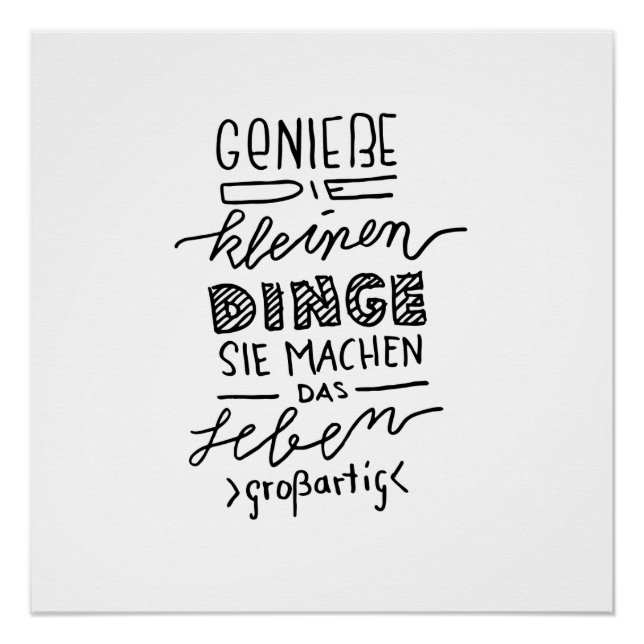 GENIEßE
DIE
kleinen
DINGE
SIE MACHEN
DAS
Leben
>großartig<